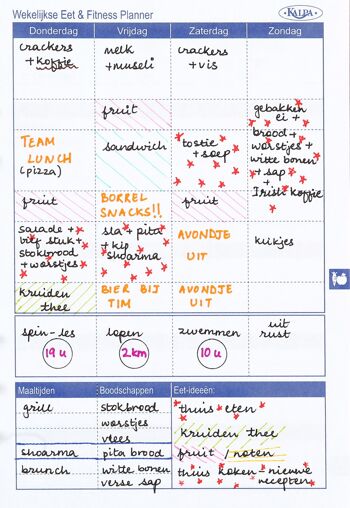 Wekelijkse Eet & Fitness Planner
KALPA
Donderdag Vrijdag Zaterdag Zondag
crackers
+ koffie
melk
+ musli
crackers
+ vis
fruit
gebakken
ei +
brood +
worstjes +
witte bonen
+ sap
+
Irish koffie
TEAM
LUNCH
(pizza)
sandwich
tostie
+ soep
fruit
BORREL
SNACKS!!
fruit
salade +
bief stuk +
stokbrood
+ worstjes
sla + pita
+ kip
shoarma
AVONDJE
UIT
kuikjes
kruiden
thee
BIER BIJ
TIM
AVONDJE
UIT
spin-les
19 u
lopen
2 km
zwemmen
10 u
uit
rust
Maaltijden Boodschappen Eet-ideeën:
grill stokbrood thuis eten
worstjes
vlees kruiden thee
shoarma pita brood fruit / noten
brunch witte bonen thuis koken - nieuwe
verse sap recepten